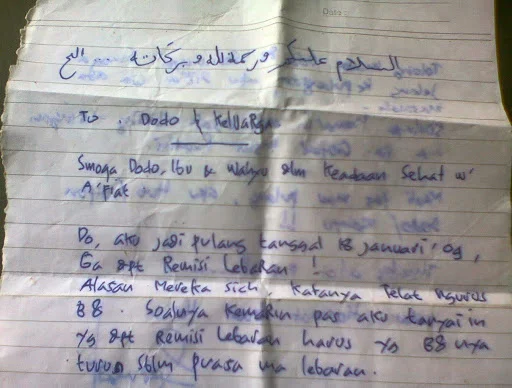 السلام عليكم ورحمة الله وبركاته ... الخ
To. Dodo & Keluarga
Smoga Dodo, Ibu & Wahyu dlm Keadaan Sehat w'
A'fiat
Do, aku jadi pulang tanggal 18 januari '09,
Ga dpt Remisi Lebaran !
Alasan Mereka sich, katanya Telat ngurus
BB. Soalnya Kemarin pas aku tanya'in
Yg dpt Remisi Lebaran harus yg BB nya
turun sblm puasa ma lebaran.